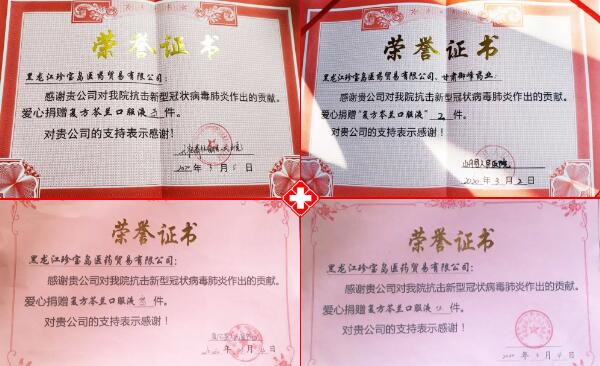 荣誉证书
黑龙江珍宝岛医药贸易有限公司:
感谢贵公司对我院抗击新型冠状病毒肺炎作出的贡献。
爱心捐赠复方芩兰口服液 件。
对贵公司的支持表示感谢!
2020年3月 日
荣誉证书
黑龙江珍宝岛医药贸易有限公司、甘肃御峰药业:
感谢贵公司对我院抗击新型冠状病毒肺炎作出的贡献。
爱心捐赠"复方芩兰口服液" 2 件。
对贵公司的支持表示感谢!
山丹县人民医院
2020年3月2日
荣誉证书
黑龙江珍宝岛医药贸易有限公司:
感谢贵公司对我院抗击新型冠状病毒肺炎作出的贡献。
爱心捐赠复方芩兰口服液 件。
对贵公司的支持表示感谢!
荣誉证书
黑龙江珍宝岛医药贸易有限公司:
感谢贵公司对我院抗击新型冠状病毒肺炎作出的贡献。
爱心捐赠复方芩兰口服液 件。
对贵公司的支持表示感谢!
2020年3月4日